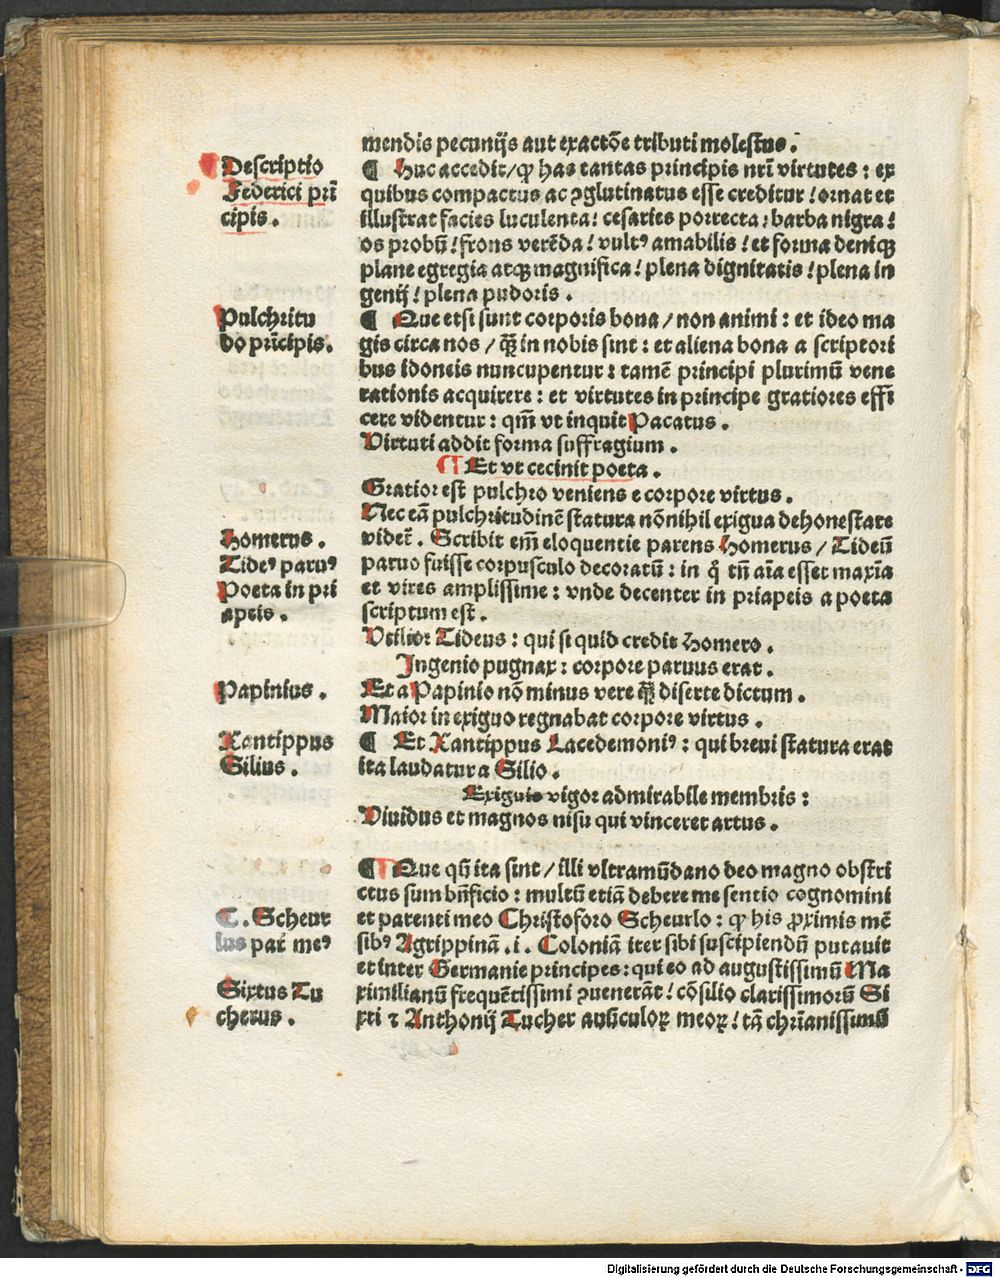 mendis pecunijs aut exactōe tributi molestus.
Descriptio
Federici prī
cipis.
¶ Huc accedit/ ꝙ has tantas principis nrī virtutes: ex
quibus compactus ac ꝯglutinatus esse creditur! ornat et
illustrat facies luculenta! cesaries porrecta, barba nigra!
os probū! frons verēda! vultꝰ amabilis! et forma deniqꝫ
plane egregia atqꝫ magnifica! plena dignitatis! plena in
genij! plena pudoris.
Pulchritu
do prīcipis.
¶ Que etsi sunt corporis bona/ non animi: et ideo ma
gis circa nos/ qꝫ̄ in nobis sint: et aliena bona a scriptori
bus idoneis nuncupentur: tamē principi plurimū vene
rationis acquirere: et virtutes in principe gratiores effi
cere videntur: qm̄ vt inquit Pacatus.
Virtuti addit forma suffragium.
¶ Et vt cecinit poeta.
Gratior est pulchro veniens e corpore virtus.
Nec eā pulchritudinē statura nōnihil exigua dehonestare
Homerus.
Tideꝰ paruꝰ
Poeta in pri
apeis.
videt̄. Scribit em̄ eloquentie parens Homerus/ Tideū
paruo fuisse corpusculo decoratū: in q̊ tn̄ aīa esset maxīa
et vires amplissime: vnde decenter in priapeis a poeta
scriptum est.
Vtilior Tideus: qui si quid credit Homero.
Ingenio pugnax: corpore paruus erat.
Papinius.
Et a Papinio nō minus vere qꝫ̄ diserte dictum.
Maior in exiguo regnabat corpore virtus.
Xantippus
Silius.
¶ Et Xantippus Lacedemoniꝰ: qui breui statura erat
ita laudatur a Silio.
Exiguis vigor admirabile membris:
Viuidus et magnos nisu qui vinceret artus.
¶ Que qū ita sint/ illi vltramūdano deo magno obstri
ctus sum bn̄ficio: multū etiā debere me sentio cognomini
C. Scheur
lus pat̄ meꝰ
et parenti meo Christoforo Scheurlo: ꝙ his ꝓximis mē
sibꝰ Agrippinā .i. Coloniā iter sibi suscipiendū putauit
et inter Germanie principes: qui eo ad augustissimū Ma
Sixtus Tu
cherus.
ximilianū frequētissimi ꝯuenerāt! cōsilio clarissimorū Si
xti ⁊ Anthonij Tucher auūculoꝝ meoꝝ! tā chrīanissimū
Digitalisierung gefördert durch die Deutsche Forschungsgemeinschaft - DFG